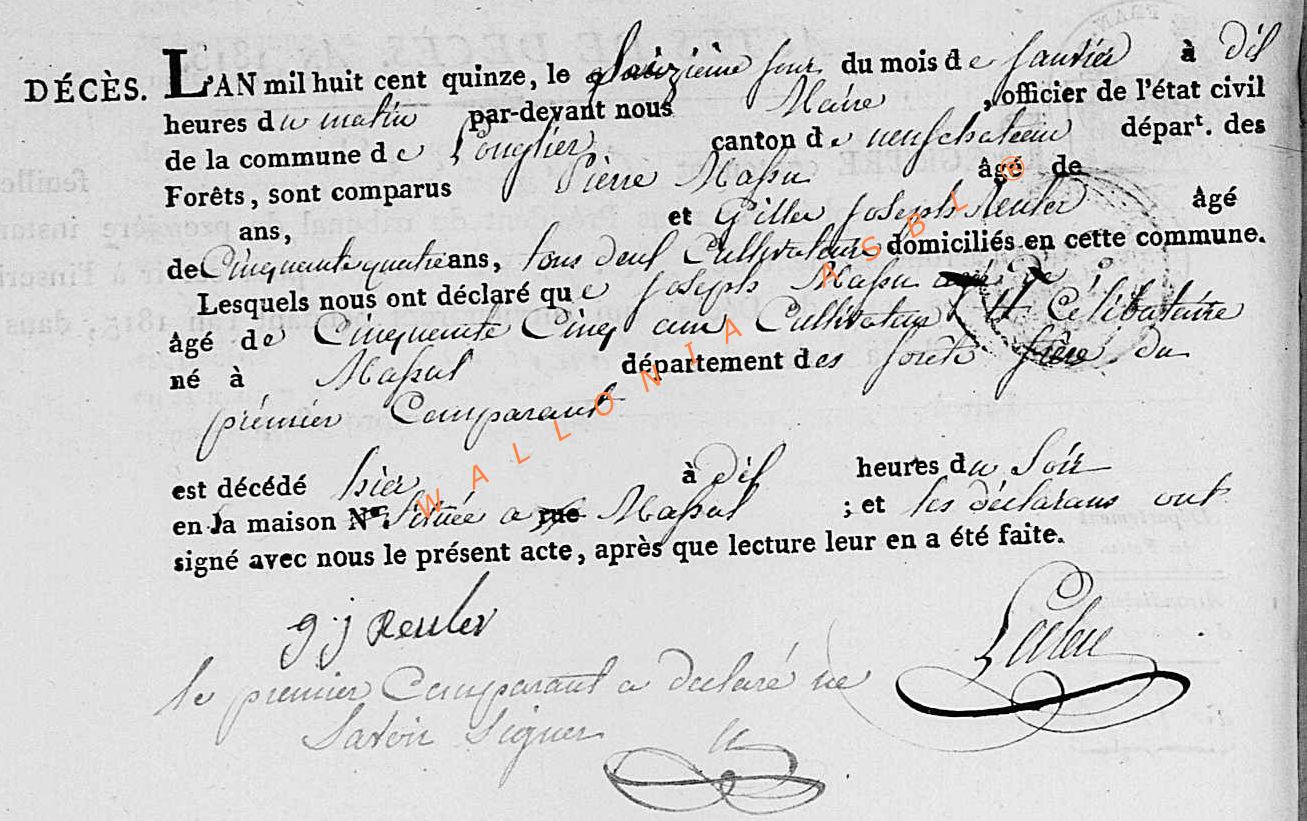 DÉCÈS. L'AN mil huit cent quinze, le jour du mois de Janvier à dix
heures du matin par-devant nous Maire , officier de l'état civil
de la commune de Longlier canton de neufchateau dépar<sup>t</sup>. des
Forêts, sont comparus Pierre Massu âgé de
ans, et Gille Joseph Reuler âgé
de Cinquante quatre ans, tous deux Cultivateurs domiciliés en cette commune.
Lesquels nous ont déclaré que Joseph Massu
âgé de Cinquante Cinq ans Cultivateur Et Célibataire
né à Massul département des forêts frère du
prémier Comparant
est décédé hier à dix heures du Soir
en la maison N°. Située a rue Massul ; et les déclarans ont
signé avec nous le présent acte, après que lecture leur en a été faite.
g j Reuler
le premier Comparant a declaré ne
Savoir Signer
WALLONIA ASBL @